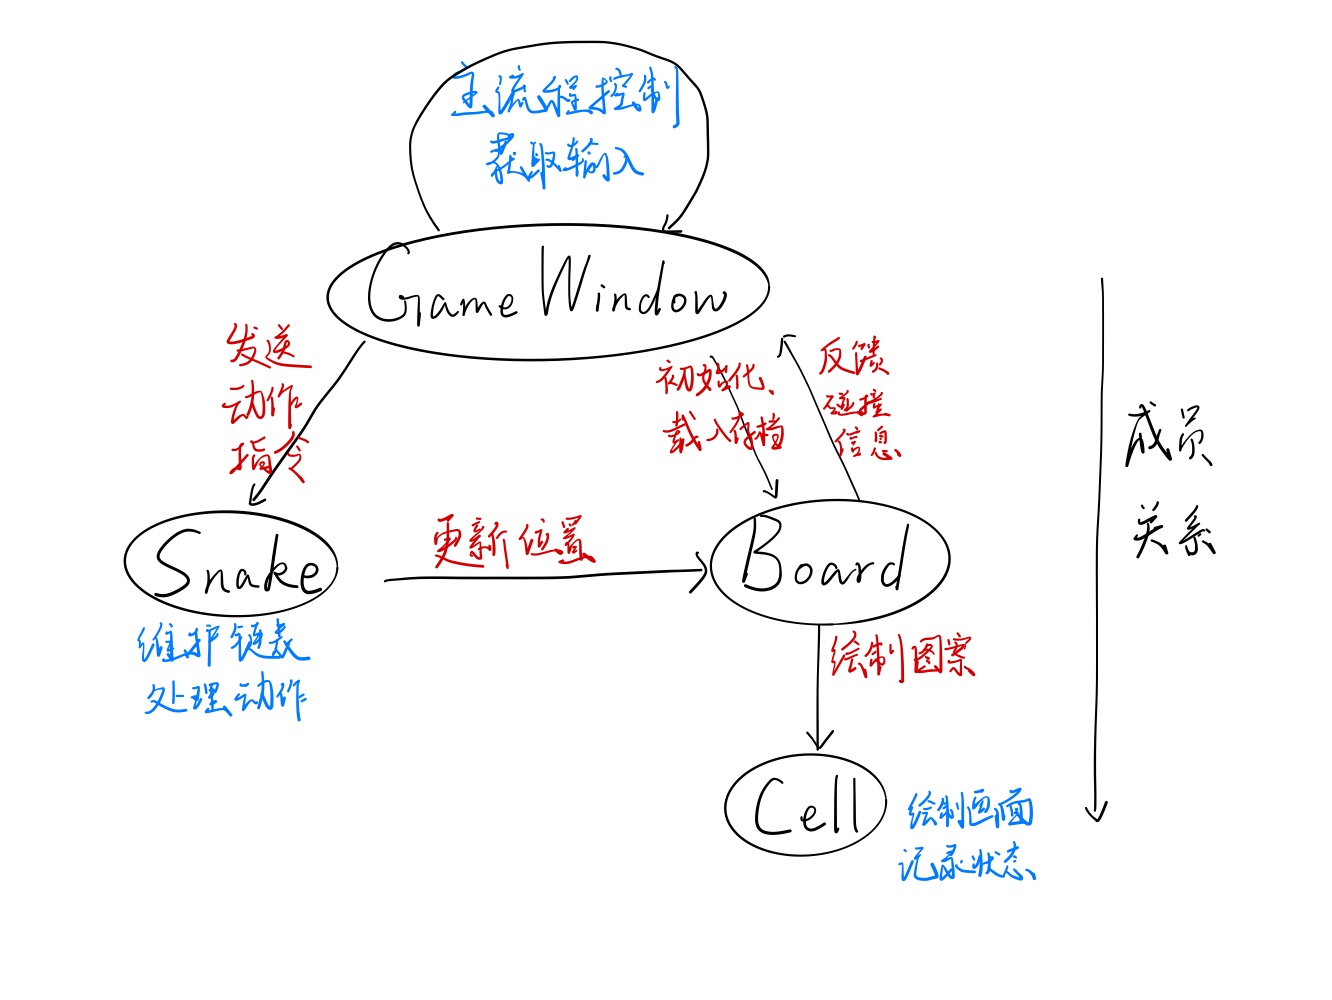 主流程控制
获取输入
GameWindow
发送
动作
指令
初始化、
载入存档
反馈
碰撞
信息
成员
关系
Snake
更新位置
Board
维护链表
处理动作
绘制图案
Cell
绘制画面
记录状态